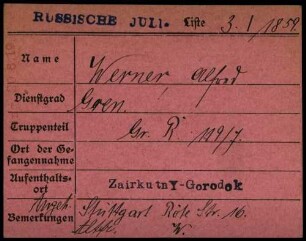 RUSSISCHE JULI. Liste 3.1/1859.
Name Werner, Alfred
Dienstgrad Gren.
Truppenteil Gr. R 119/7.
Ort der Gefangennahme
Aufenthaltsort Zairkutny-Gorodok
Bemerkungen Stuttgart Röte Str. 16.
W.